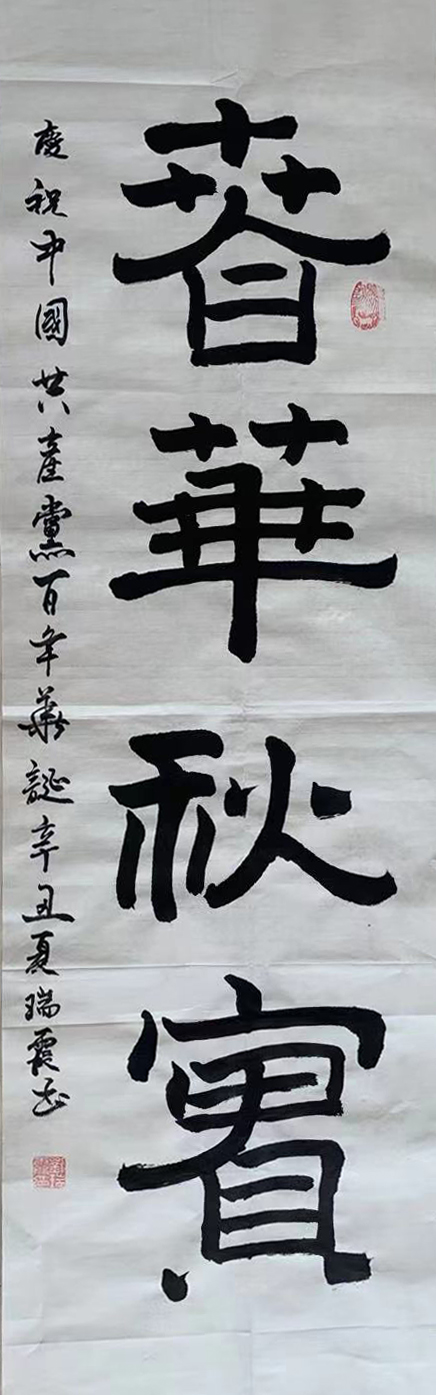 春華秋實
慶祝中國共產黨百年華誕辛丑夏瑞霞书